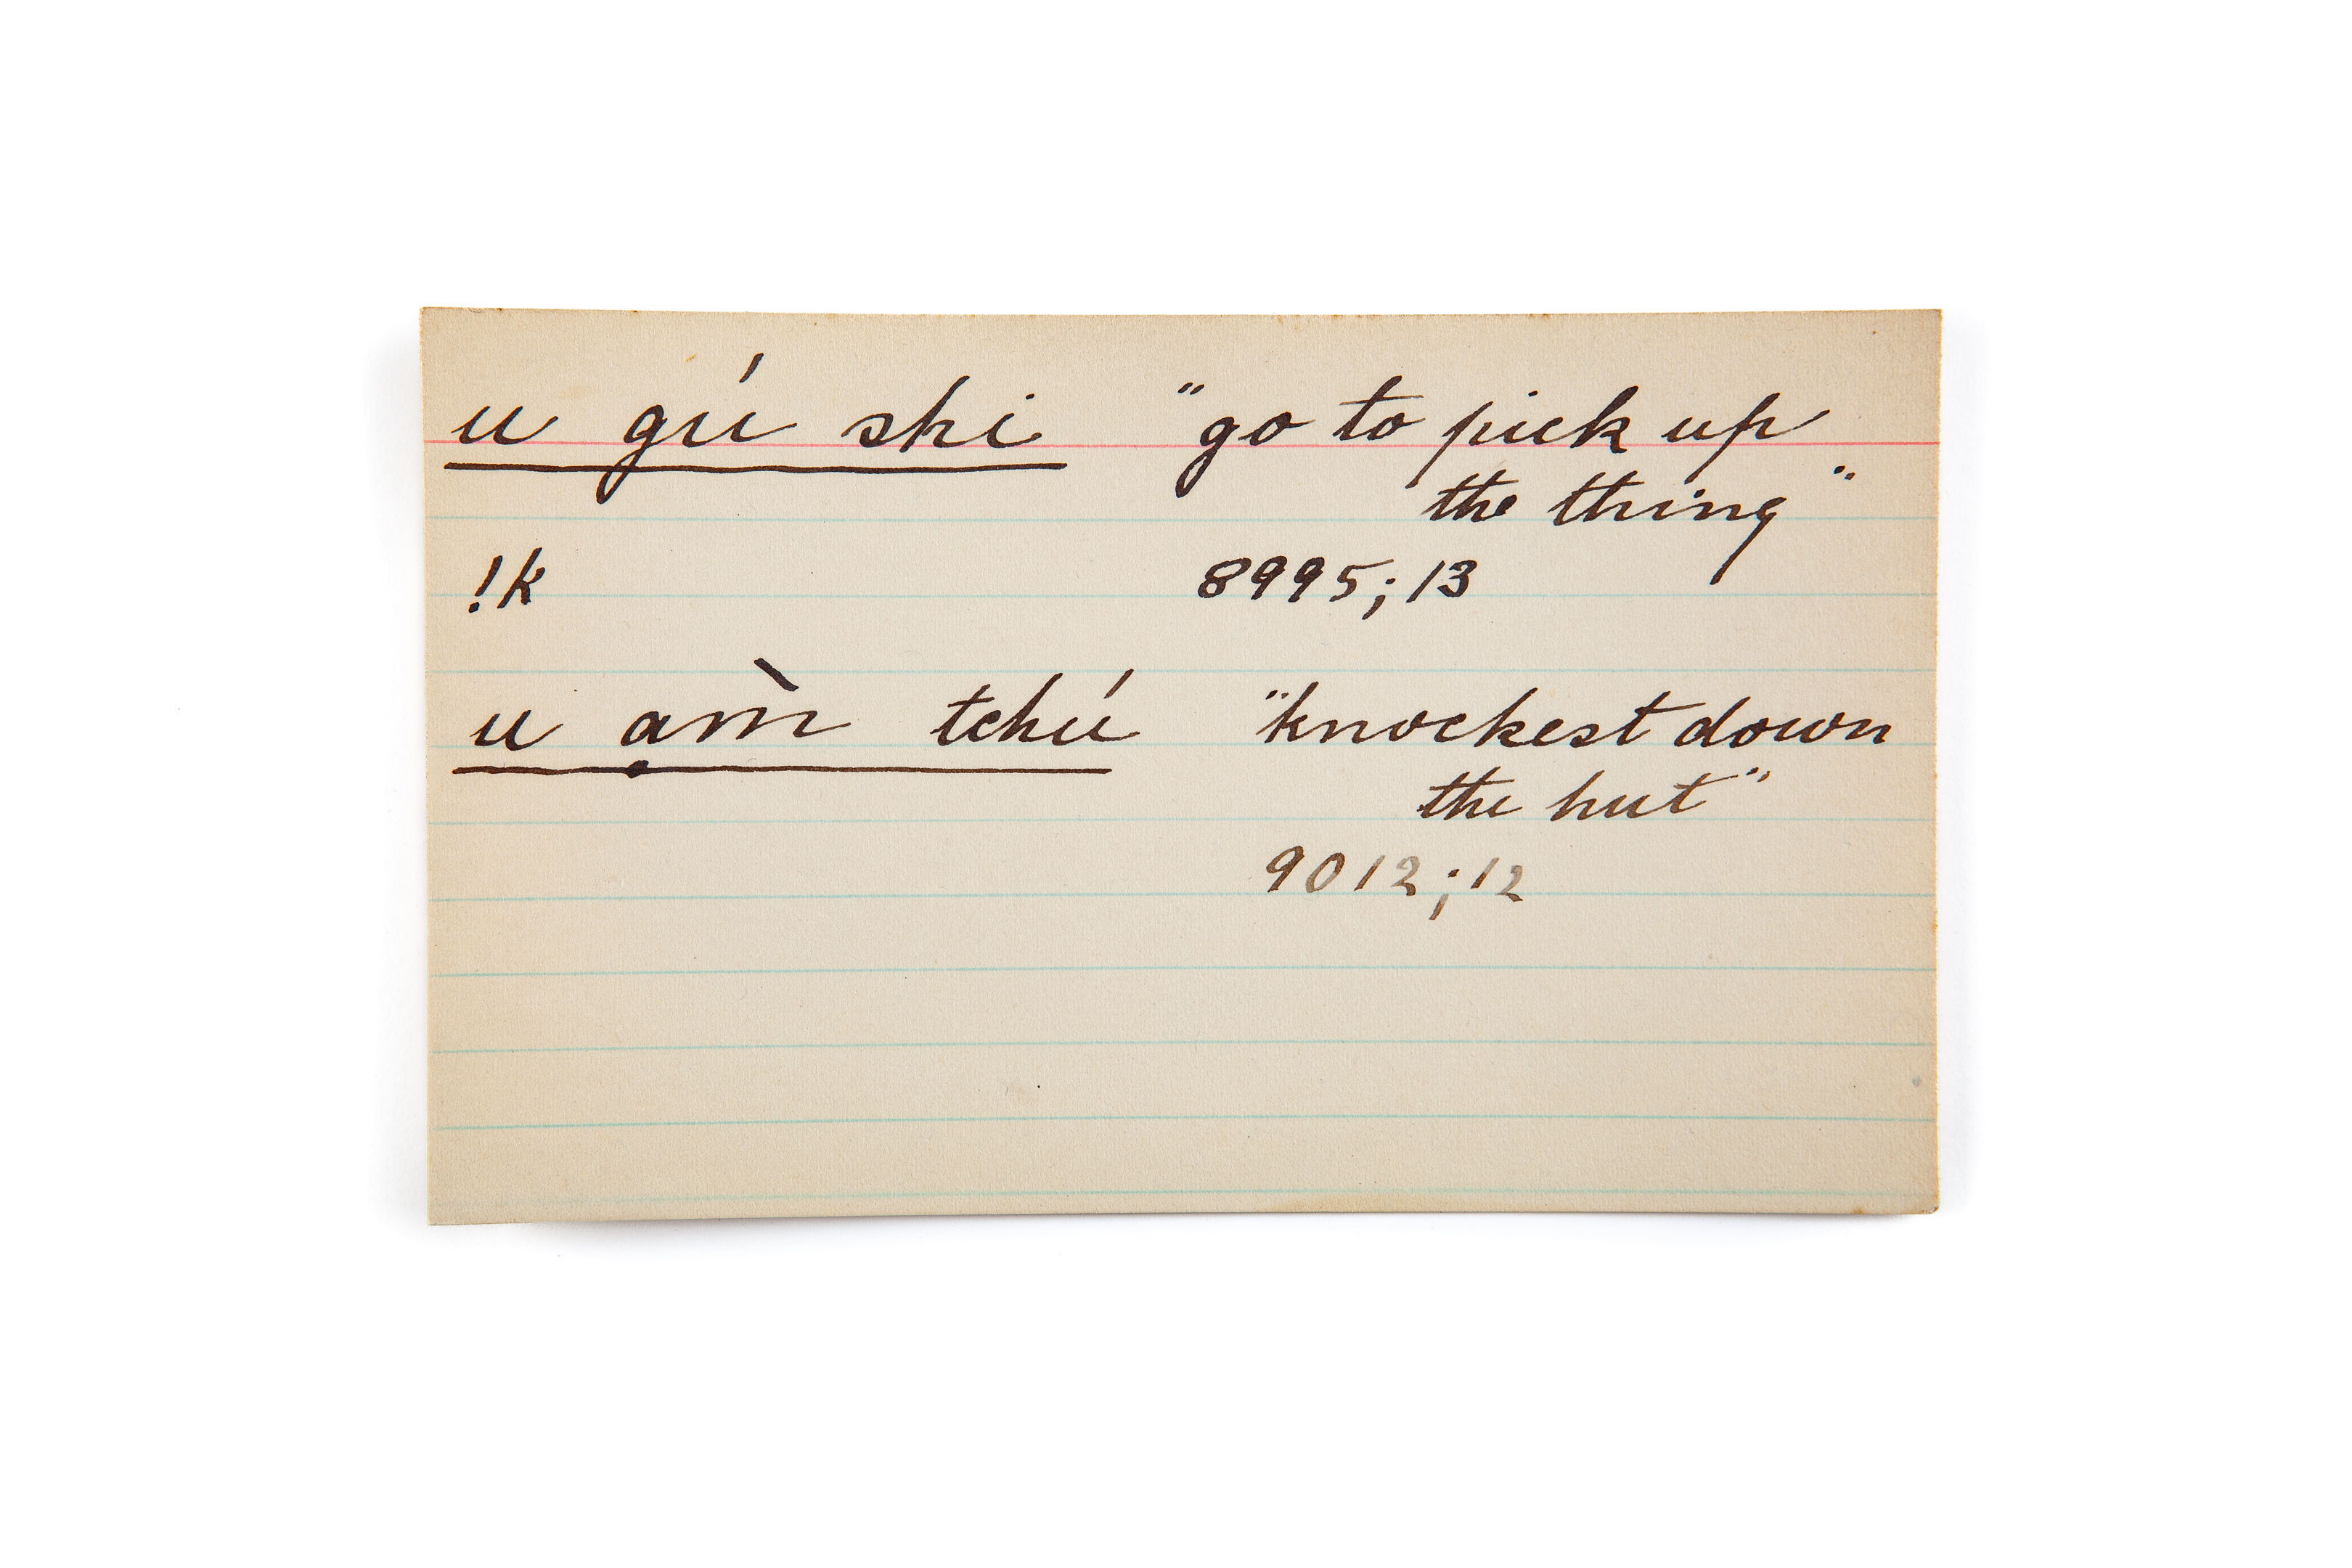 u gú shi "go to pick up
the thing"
!k 8995; 13
u ạm̀ tchú "knockest down
the hut"
9012; 12